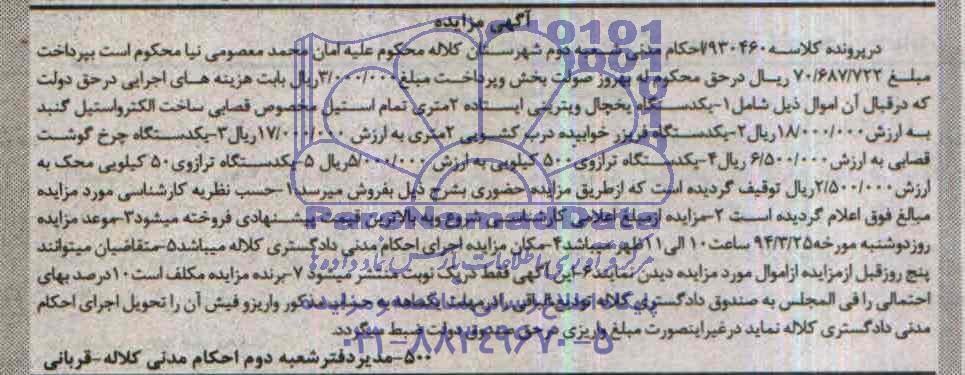 آگهی مزایده
درپرونده کلاسه ۹۳۰۴۶۰/احکام مدنی شعبه دوم شهرستان کلاله محکوم علیه امان محمد معصومی نیا محکوم است بپرداخت
مبلغ ۷۰/۶۸۷/۷۲۲ ریال درحق محکوم له بهروز صولت بخش وپرداخت مبلغ ۳/۰۰۰/۰۰۰ریال بابت هزینه های اجرایی درحق دولت
که درقبال آن اموال ذیل شامل۱-یکدستگاه یخچال ویترینی ایستاده ۲متری تمام استیل مخصوص قصابی ساخت الکترواستیل گنبد
به ارزش۱۸/۰۰۰/۰۰۰ریال۲-یکدستگاه فریزر خوابیده درب کشویی ۲متری به ارزش ۱۷/۰۰۰/۰۰۰ریال۳-یکدستگاه چرخ گوشت
قصابی به ارزش۶/۵۰۰/۰۰۰ ریال۴-یکدستگاه ترازوی۵۰۰ کیلویی به ارزش۵/۰۰۰/۰۰۰ریال ۵-یکدستگاه ترازوی۵۰ کیلویی محک به
ارزش۲/۵۰۰/۰۰۰ریال توقیف گردیده است که ازطریق مزایده حضوری بشرح ذیل بفروش میرسد۱-حسب نظریه کارشناسی مورد مزایده
مبالغ فوق اعلام گردیده است ۲-مزایده ازمبلغ اعلامی کارشناسی شروع وبه بالاترین قیمت پیشنهادی فروخته میشود۳-موعد مزایده
روزدوشنبه مورخه۹۴/۳/۲۵ ساعت۱۰ الی۱۱ظهرمیباشد۴-مکان مزایده اجرای احکام مدنی دادگستری کلاله میباشد۵-متقاضیان میتوانند
پنج روزقبل ازمزایده ازاموال مورد مزایده دیدن نمایند۶-این آگهی فقط دریک نوبت منتشر میشود ۷-برنده مزایده مکلف است۱۰درصد بهای
احتمالی را فی المجلس به صندوق دادگستری کلاله تودیع الباقی رادرمهلت یکماهه به حساب مذکور واریزو فیش آن را تحویل اجرای احکام
مدنی دادگستری کلاله نماید درغیراینصورت مبلغ واریزی درحق صندوق دولت ضبط میگردد.
۵۰۰-مدیردفترشعبه دوم احکام مدنی کلاله-قربانی
ParsNamadData
۰۲۱-۸۸۳۴۹۶۷۰-۵